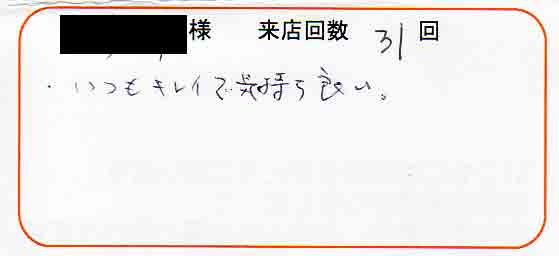 様 来店回数 31 回
・いつもキレイで気持ち良い。